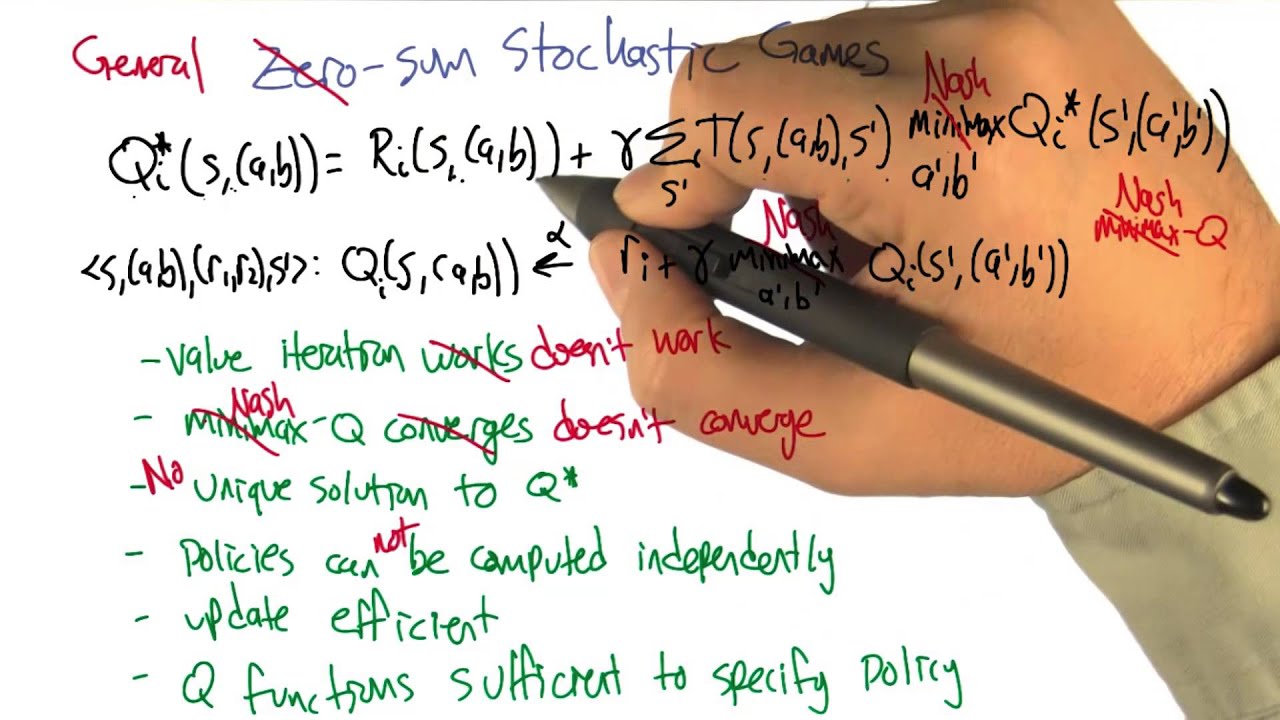 General Zero-sum Stochastic Games
Nash
Qi*(s,(a,b)) = Ri(s,(a,b)) + γ Σ T(s,(a,b),s') minimax Qi*(s',(a',b'))
s' a',b'
Nash
minimax-Q
Nash
<s,(a,b),(r1,r2),s'>: Qi(s,(a,b)) ←α ri + γ minimax Qi(s',(a',b'))
a',b'
- value iteration works doesn't work
Nash
- minimax-Q converges doesn't converge
- No unique solution to Q*
- policies can not be computed independently
- update efficient
- Q functions sufficient to specify policy